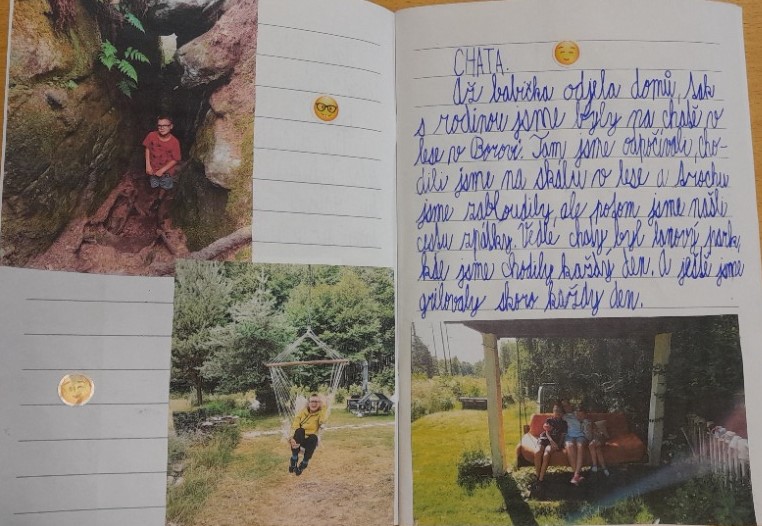 CHATA.
Až babička odjela domů, tak
s rodinou jsme byly na chatě v
lese v Borově. Tam jsme odpočívali, cho-
dili jsme na skálu v lese a trochu
jsme zabloudily, ale potom jsme našli
cestu zpátky. Vedle chaty byl lanový park,
kde jsme chodily každý den. A ještě jsme
grilovaly skoro každý den.